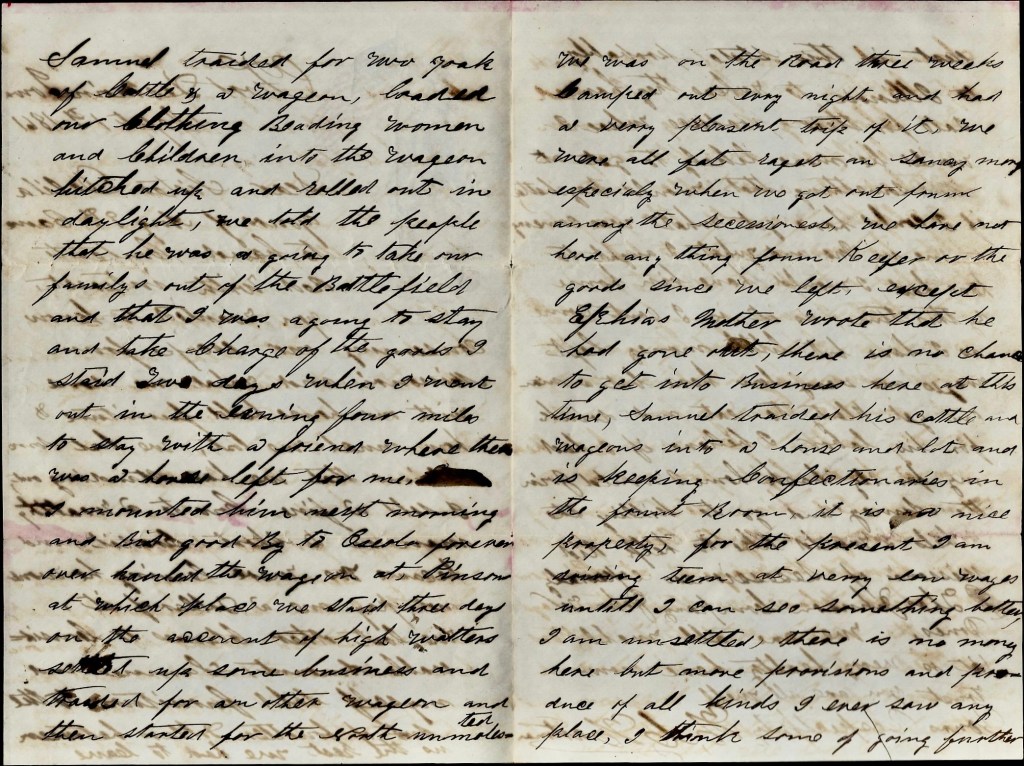 Samuel traided for two yoak
of Cattle & a wageon, loaded
our Clothing Beading women
and Children into the wageon
hitched up and rolled out in
daylight, we told the people
that he was a going to take our
familys out of the Battlefield
and that I was agoing to stay
and take Charge of the goods I
staid two days when I went
out in the evning four miles
to stay with a friend where there
was a horse left for me,
I mounted him next morning
and Bid good By to Oseola forever
over hauled the wageon at Pinson
at which place we staid three days
on the account of high watters
settled up some business and
traided for another wageon and
then started for the North unmolested
we was on the Road three weeks
Camped out evry night and had
a verry pleasent trip of it, we
were all fat raget an sancy more
especialy when we got out from
among the secessionest, we have not
herd any thing from Keefer or the
goods since we left, except
Ephias Mother wrote that he
had gone out, there is no chance
to get into Business here at this
time, Samuel traided his cattle and
wageons into a house and lot and
is keeping Confectionaries in
the front Room, it is nice
property, for the present I am
team at verry low wages
untill I can see something better,
I am unsettled, there is no money
here but more provisions and pro-
duce of all kinds I ever saw any
place, I think some of going further